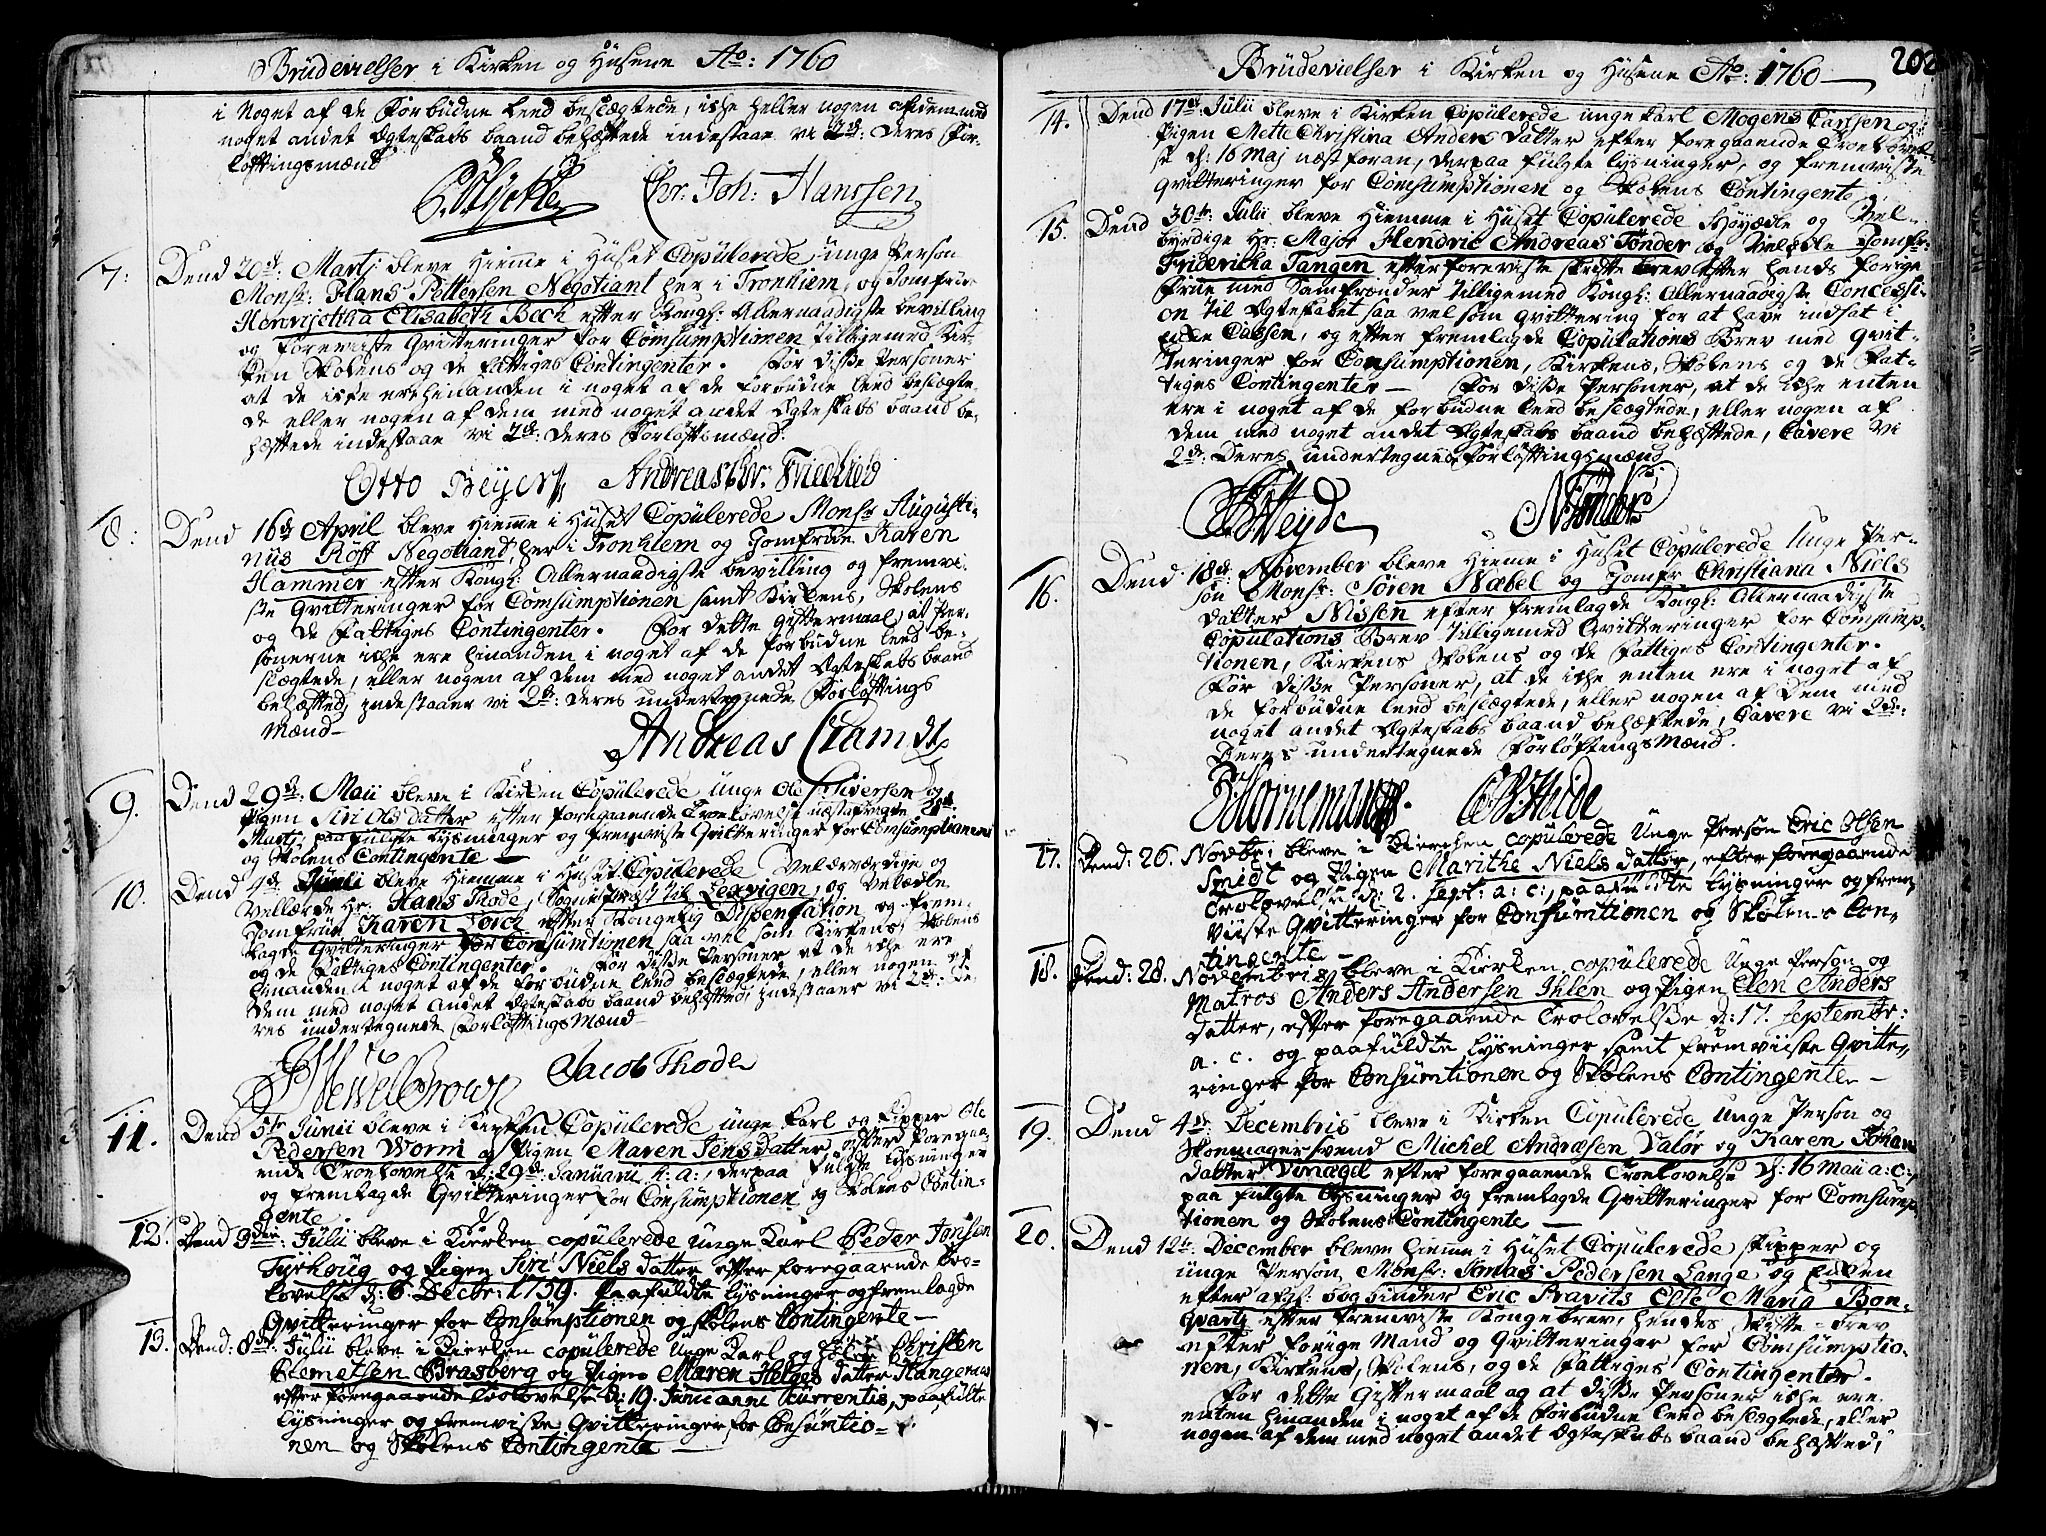 Brüdevielser i Kirken og Husene Ao: 1760
i Noget af de forbudne leed beslægtede, ikke heller nogen af dem med
noget andet Ægteskabs baand behæftede indestaae vi 2de: deres For-
løftingsmænd
Chr. Joh: Hanssen
7: Dend 20de: Martj bleve hiemme i Huset Copulerede unge Person
Monsr: Hans Pettersen Negotiant her i Tronhiem, og Jomfrue
Henrijetha Elisabeth Bech efter Kongl: Allernaadigste bevilling
og foreviiste Qvitteringer for Comsumptionen tilligemed Kir-
ken Skolens og de fattiges Contingenter. For disse Personer
at de ikke ere hinanden i noget af de forbudne leed beslægte-
de eller nogen af dem med noget andet Ægteskabs baand be-
hæftede indestaae vi 2de: deres Forløftsmænd.
Otto Beyer Andreas Chr. Friedlieb
8: Dend 16de April bleve hiemme i Huset Copulerede Monsr Augusti-
nus Röff Negotiand, her i Tronhiem og Jomfrue Karen
Hammer efter Kongl: Allernaadigste bevilling og fremvi-
ste Qvitteringer for Comsumptionen samt Kirkens, Skolens
og de Fattiges Contingenter. For dette gifftermaal, at Per-
sonerne ikke ere hinanden i noget af de forbudne leed be-
slægtede, eller nogen af dem med noget andet Ægteskabs baand
behæfted, indestaaer vi 2de: deres undertegnede Forløftings
Mænd
Andreas Cramdt
9. Dend 29de: Maii bleve i Kirken Copulerede unge Ole Andersen og
Pigen Siri Olsdatter efter foregaaende Troelovelse næstafvigte
Martj, paafulgte Lysninger og fremviste Qvitteringer for Comsumptionen
og Skolens Contingente
10. Dend 4de Junii bleve hiemme i Huset Copulerede Velærværdige og
Vellærde Hr. Hans Thode, Sogneprest til Lexvigen, og Velædle
Jomfrue Karen Lorch efter Kongelig Dispensation og frem-
lagde Qvitteringer for Comsumptionen saa vel som Kirkens, Skolens
og de Fattiges Contingenter. For disse Personer at de ikke ere
hinanden i noget af de forbudne leed beslægtede, eller nogen af
dem med noget andet Ægteskabs baand behæfted, indestaaer vi 2de: De-
res undertegnede Forløftings Mænd
Jacob Thode
11. Dend 5te Junii bleve i Kirken Copulerede unge Karl og Ole
Pedersen Worm og Pigen Maren Jens datter, efter foregaa-
ende Troelovelse d: 29de: Januarii h: a:, derpaa fulgte Lysninger
og fremlagde Qvitteringer for Consumptionen og Skolens Contin-
gente
12. Dend 3den: Julii bleve i Kierken copulerede unge Karl Peder Jonsen
Tyrhoug og Pigen Siri Niels datter efter foregaaende Troe-
lovelse d: 6. Decbr: 1759. paafuldte Lysninger og fremlagde
Qvitteringer for Consumptionen og Skolens Contingente
13. Dend: 8de: Julii bleve i Kierken copulerede unge Karl og Christen
Klemetsen Brasberg og Pigen Maren Helges datter Kangeraae
efter foregaaende Troelovelse d: 19. Junii anni currentis, paafulte
Lysninger og fremviste Qvitteringer for Consumtio-
nen og Skolens Contingente
Brüdevielser i Kirken og Husene Ao: 1760
202
14. Dend 17de Julii bleve i Kirken Copulerede unge Karl Mogens Carlsen og
Pigen Mette Christina Anders datter efter foregaaende Troelovel-
se d: 16 Maj næst foran, derpaa fulgte Lysninger, og fremviste
Qvitteringer for Comsumptionen og Skolens Contingente
15. Dend 30te: Julii bleve hiemme i Huset Copulerede Høyædle og Vel-
byrdige Hr. Major Hendric Andreas Tønder og Velædle Jomfr:
Friderikha Tangen efter foreviste skifte brev efter hands forige
Frue med Samfrænder tilligemed Kongl: Allernaadigste Concessi-
on til Ægteskabet saa vel som Qvittering for at have indsat i
Cassen, og efter fremlagde Copulations Brev med Qvit-
teringer for Comsumptionen, Kirkens, Skolens og de Fat-
tiges Contingenter — For disse Personer, at de ikke enten
ere i noget af de forbudne leed beslægtede, eller nogen af
dem med noget andet Ægteskabs baand behæftede, Cavere vi
2de: Deres undertegnede Forløftingsmænd
16. Dend 18de: November bleve hiemme i Huset Copulerede Unge Per-
son Monsr: Sören Næbel og Jomfr Christiana Niels
datter Nissen efter fremlagde Kongl: Allernaadigste
Copulations Brev tilligemed Qvitteringer for Comsump-
tionen, Kirkens Skolens og de Fattiges Contingenter.
For disse Personer, at de ikke enten ere i noget af
de forbudne leed beslægtede, eller nogen af dem med
noget andet Ægteskabs baand behæftede, Cavere vi 2de:
Deres undertegnede Forløftings Mænd.
Hornemann
17. Dend: 26. Novbr: bleve i Kierchen copulerede Unge Person Eric Olsen
Smidt og Pigen Marithe Niels datter, efter foregaaende
Trolovelse d: 2. Sept: a: c:, paafuldte Lysninger og frem-
viiste Qvitteringer for Consumtionen og Skolens Con-
tingente
18. Dend: 28. Novembris bleve i Kierken copulerede Unge Person og
Matros Anders Andersen Ihlen og Pigen Elen Anders
datter, efter foregaaende Trolovelse d: 17. Septembr:
a. c. og paafuldte Lysninger samt fremviiste Qvitte-
ringer for Consumtionen og Skolens Contingente
19. Dend 4de: Decembris bleve i Kirken Copulerede Unge Person og
Skomagersvend Michel Andræsen Dalør og Karen Johans
datter efter foregaaende Troelovelse d: 16 Maii a: c:
paa fulgte Lysninger og fremlagde Qvitteringer for Comsump-
tionen og Skolens Contingente
20. Dend 12te: December bleve hiemme i Huset Copulerede skipper og
unge Person Monsr: Jonas Pedersen Lange og Enken
efter afg: bogbinder Eric Pravits Else Maria Bon-
qvartj efter fremviste Kongebrev, hendes Skifte-brev
efter forige Mand og Qvitteringer for Comsumptio-
nen, Kirkens, Skolens, og de Fattiges Contingenter.
For dette Gifftermaal og at disse Personer ikke ere
enten hinanden i noget af de forbudne leed beslægtede, eller
nogen af dem med noget andet Ægteskabs baand behæfted,